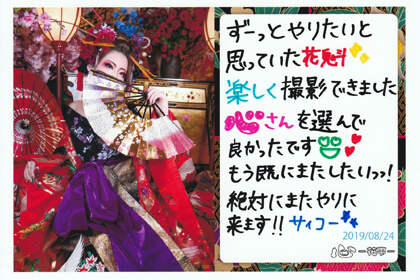 ずーっとやりたいと
思っていた花魁
楽しく撮影できました
心さんを選んで
良かったです
もう既にまたしたいっっ!
絶対にまたやりに
来ます!! サイコー
2019/08/24